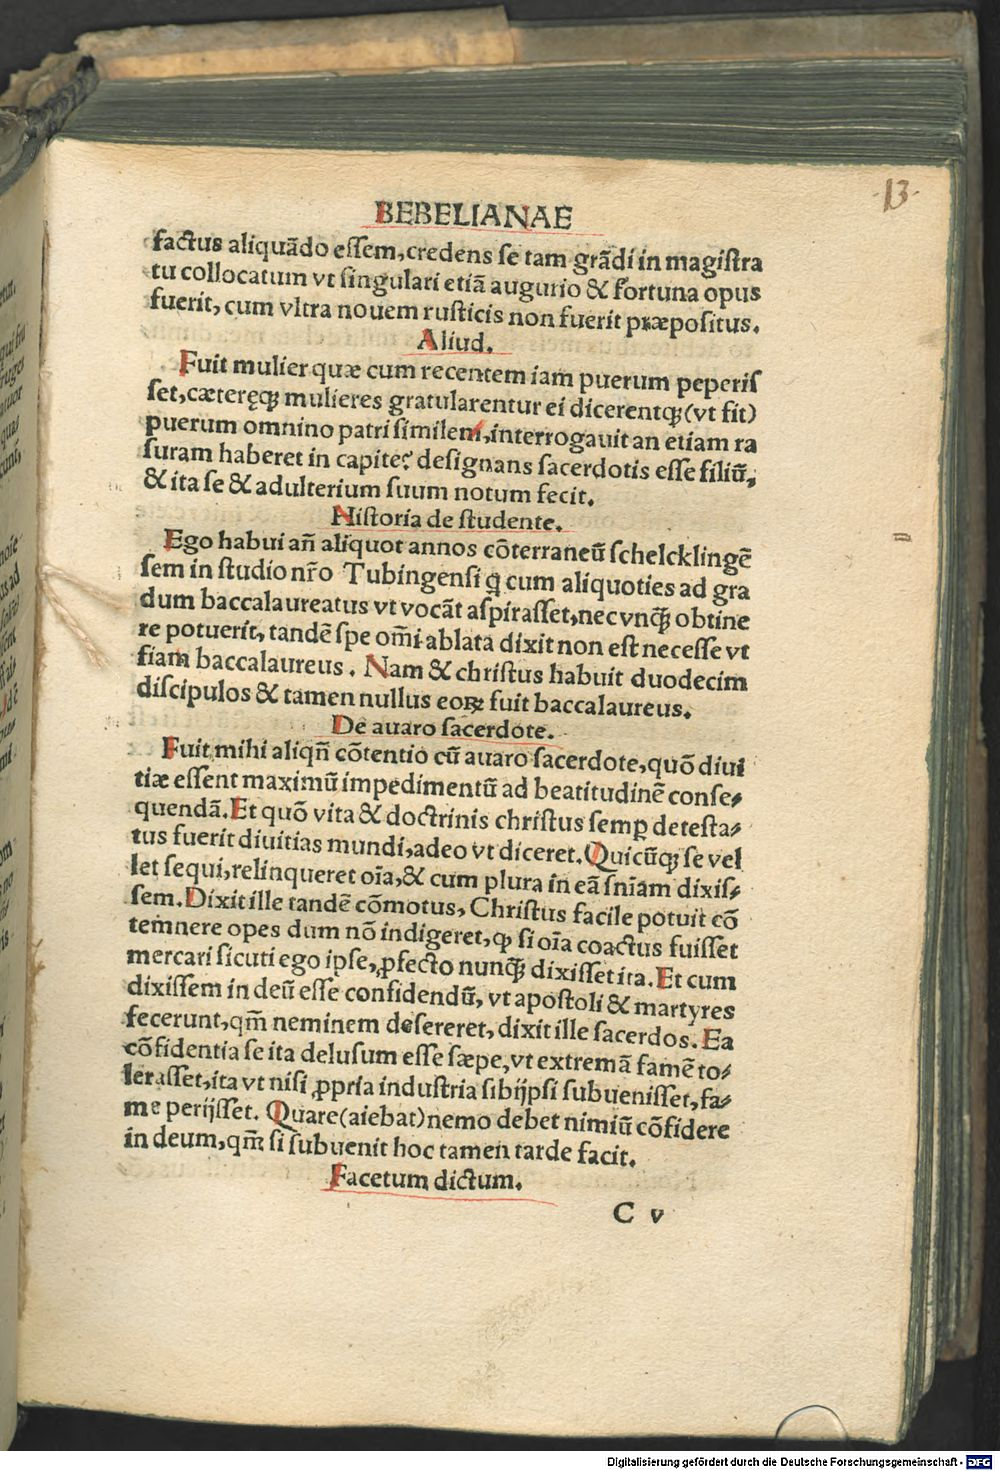 13
BEBELIANAE
factus aliquādo essem, credens se tam grādi in magistra
tu collocatum vt singulari etiā augurio & fortuna opus
fuerit, cum vltra nouem rusticis non fuerit præpositus.
Aliud.
Fuit mulier quæ cum recentem iam puerum peperis
set, cæteręqꝫ mulieres gratularentur ei dicerentqꝫ (vt fit)
puerum omnino patri similem, interrogauit an etiam ra
suram haberet in capite? designans sacerdotis esse filiū,
& ita se & adulterium suum notum fecit.
Historia de studente.
Ego habui añ aliquot annos cōterraneū schelcklingē
sem in studio nr̄o Tubingensi q̄ cum aliquoties ad gra
dum baccalaureatus vt vocāt aspirasset, nec vnqꝫ obtine
re potuerit, tandē spe om̄i ablata dixit non est necesse vt
fiam baccalaureus. Nam & christus habuit duodecim
discipulos & tamen nullus eoꝝ fuit baccalaureus.
De auaro sacerdote.
Fuit mihi aliqñ cōtentio cū auaro sacerdote, quō diui
tiæ essent maximū impedimentū ad beatitudinē conse-
quendā. Et quō vita & doctrinis christus semꝑ detesta-
tus fuerit diuitias mundi, adeo vt diceret. Quicūqꝫ se vel
let sequi, relinqueret oīa, & cum plura in eā sn̄iam dixis-
sem. Dixit ille tandē cōmotus, Christus facile potuit cō
temnere opes dum nō indigeret, ꝙ si oīa coactus fuisset
mercari sicuti ego ipse, ꝓfecto nunqꝫ dixisset ita. Et cum
dixissem in deū esse confidendū, vt apostoli & martyres
fecerunt, qm̄ neminem desereret, dixit ille sacerdos. Ea
cōfidentia se ita delusum esse sæpe, vt extremā famē to-
lerasset, ita vt nisi ꝓpria industria sibijpsi subuenisset, fa-
me perijsset. Quare (aiebat) nemo debet nimiū cōfidere
in deum, qm̄ si subuenit hoc tamen tarde facit.
Facetum dictum.
C v
Digitalisierung gefördert durch die Deutsche Forschungsgemeinschaft - DFG